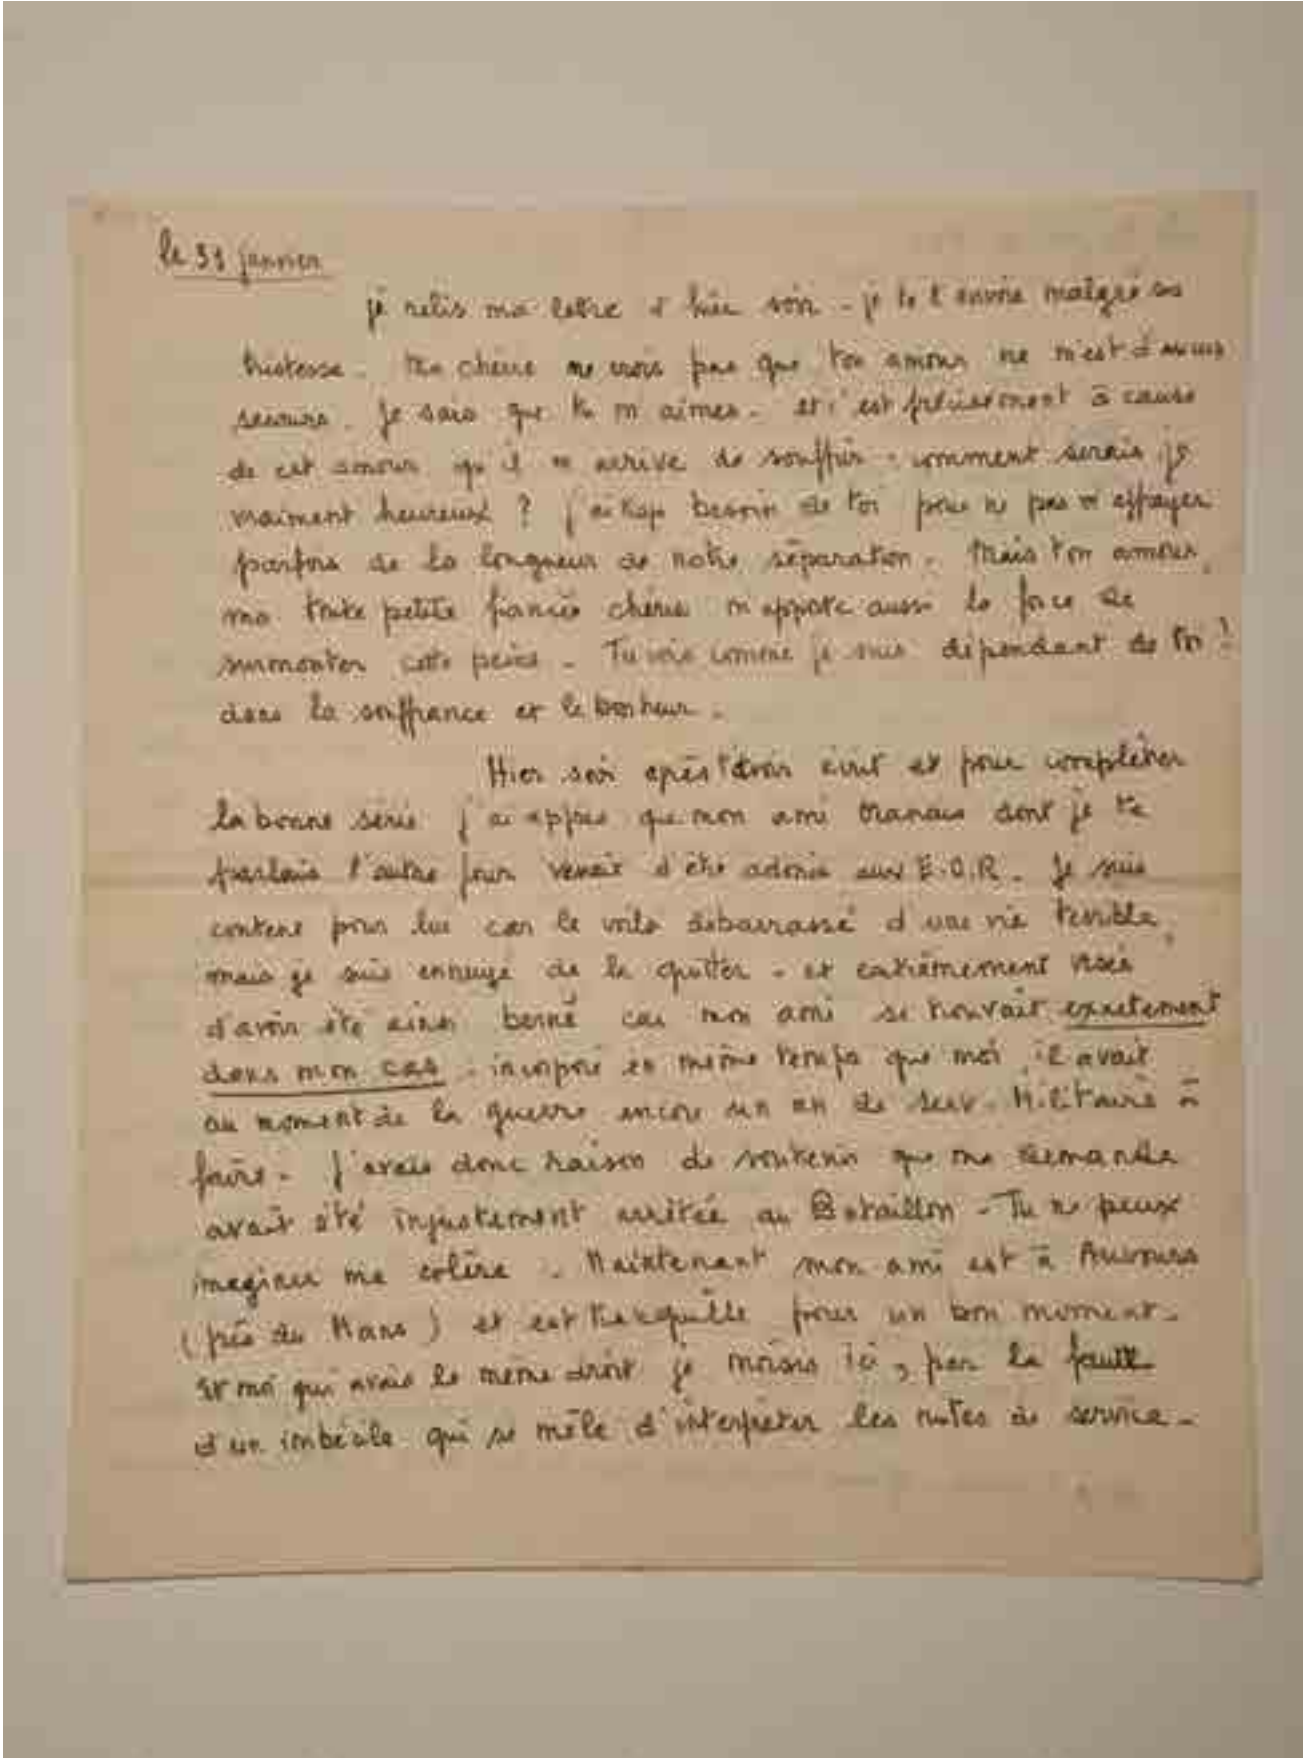 le 31 janvier
je relis ma lettre d'hier soir - je te l'envoie malgré sa
tristesse. Ma chérie ne crois pas que ton amour ne m'est d'aucun
secours. Je sais que tu m'aimes. et c'est précisément à cause
de cet amour qu'il m'arrive de souffrir. comment serais-je
vraiment heureux ? j'ai trop besoin de toi pour ne pas m'effrayer
parfois de la longueur de notre séparation. Mais ton amour,
ma toute petite fiancée chérie m'apporte aussi la force de
surmonter cette peine. Tu vois comme je suis dépendant de toi !
dans la souffrance et le bonheur.
Hier soir après t'avoir écrit et pour compléter
la bonne série j'ai appris que mon ami dont je te
parlais l'autre jour venait d'être admis aux E.O.R. Je suis
content pour lui car le voilà débarrassé d'une vie terrible,
mais je suis ennuyé de le quitter - et extrêmement vexé
d'avoir été ainsi berné car mon ami se trouvait exactement
dans mon cas : incorporé en même temps que moi, il avait
au moment de la guerre encore un an de serv. Militaire à
faire. J'avais donc raison de soutenir que ma demande
avait été injustement arrêtée au Bataillon. Tu ne peux
imaginer ma colère. Maintenant mon ami est à Auvours
(près du Mans) et est tranquille pour un bon moment.
Et moi qui avais le même droit je moisis ici, par la faute
d'un imbécile qui se mêle d'interpréter les notes de service.